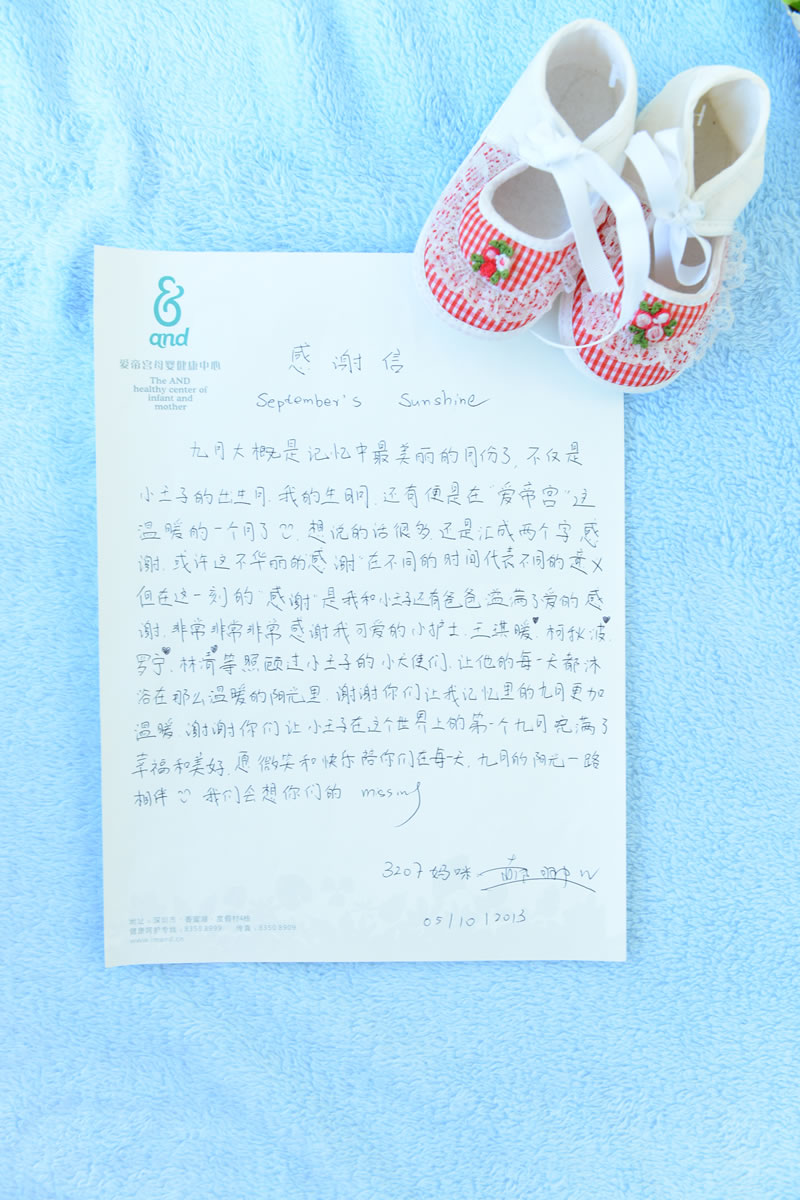 &
and
爱帝宫母婴健康中心
The AND
healthy center of
infant and
mother
感谢信
September's Sunshine
九月大概是记忆中最美丽的月份了,不仅是
小王子的出生月,我的生日月,还有便是在“爱帝宫”这
温暖的一个月了 想说的话很多,还是汇成两个字感
谢,或许这不华丽的“感谢”在不同的时间代表不同的意义
但在这一刻的“感谢”是我和小王子还有爸爸溢满了爱的感
谢,非常非常非常感谢我可爱的小护士,王琪暖,柯秋波,
罗宁,林清等照顾过小王子的小天使们,让他的每一天都沐
浴在那么温暖的阳光里,谢谢你们让我记忆里的九月更加
温暖,谢谢你们让小王子在这个世界上的第一个九月充满了
幸福和美好,愿微笑和快乐陪你们在每一天,九月的阳光一路
相伴 我们会想你们的 missing
3207妈咪
05/10/2013
地址:深圳市·香蜜湖·度假村4栋
健康呵护专线:8350 8999 传真:8350 8909
www.imand.cn